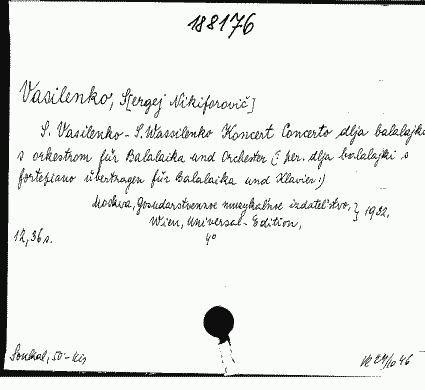 188176
Vasilenko, S[ergej Nikiforovič]
S. Vasilenko - S. Wassilenko Koncert Concerto dlja balalajki
s orkestrom für Balalaika und Orchester (: per. dlja balalajki s
fortepiano übertragen für Balalaika und Klavier :)
Moskva, Gosudarstvennoe muzykal'noe izdatel'stvo, } 1932.
Wien, Universal-Edition,
12, 36 s. 4°
Soukal, 50.-Kčs